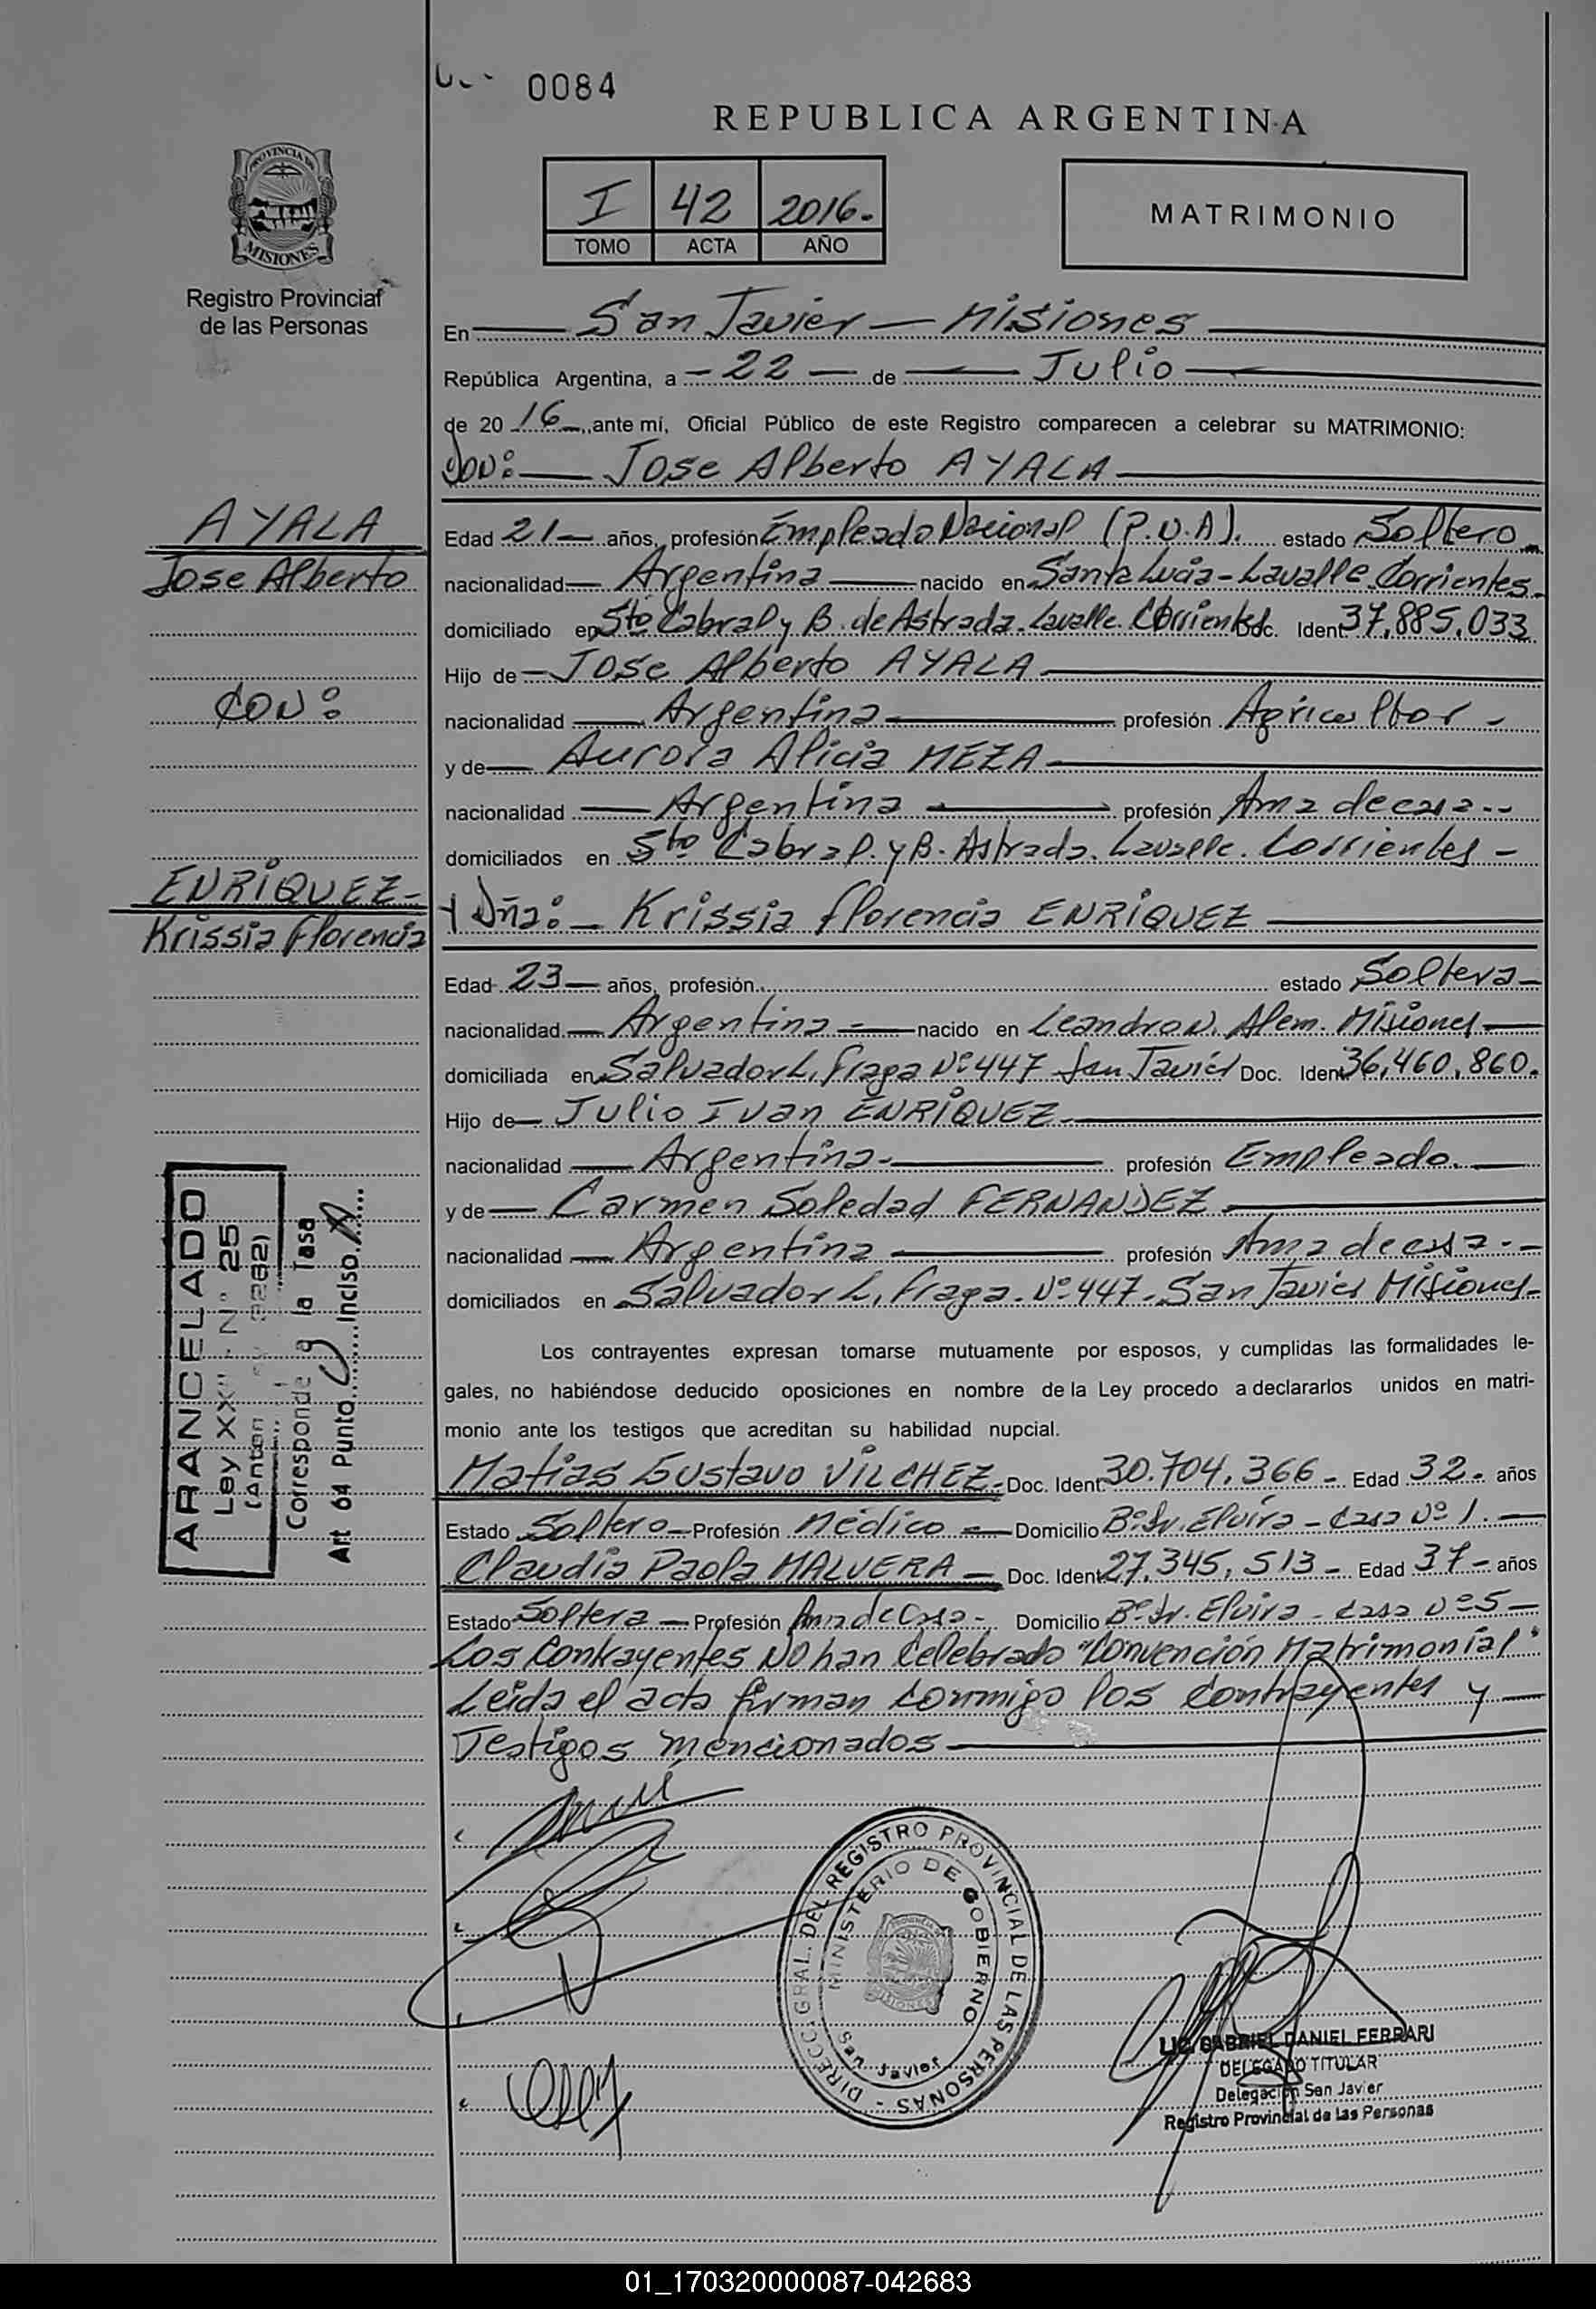 0084
REPUBLICA ARGENTINA
I 42 2016.
TOMO ACTA AÑO
MATRIMONIO
PROVINCIA DE
MISIONES
Registro Provincial
de las Personas
En San Javier - Misiones
República Argentina, a - 22 - de Julio
de 2016, ante mí, Oficial Público de este Registro comparecen a celebrar su MATRIMONIO:
Don: Jose Alberto AYALA
AYALA
Jose Alberto
CON:
ENRIQUEZ-
Krissia Florencia
Edad 21 años, profesión Empleado Nacional (P.N.A). estado Soltero
nacionalidad Argentina nacido en Santa Lucia - Lavalle. Corrientes.
domiciliado en Sto Cabral y B. de Astrada. Lavalle. Corrientes Doc. Ident 37,885,033
Hijo de Jose Alberto AYALA
nacionalidad Argentina profesión Agricultor -
y de Aurora Alicia MEZA
nacionalidad Argentina profesión Ama de casa.-
domiciliados en Sto Cabral. y B. Astrada. Lavalle. Corrientes -
Y Dña: - Krissia Florencia ENRIQUEZ
Edad 23 años, profesión estado Soltera -
nacionalidad Argentina - nacido en Leandro N. Alem. Misiones
domiciliada en Salvador L. Fraga Nº 447 San Javier Doc. Ident 36,460,860.
Hijo de Julio Ivan ENRIQUEZ
nacionalidad Argentina profesión Empleado.
y de Carmen Soledad FERNANDEZ
nacionalidad Argentina profesión Ama de casa.-
domiciliados en Salvador L. Fraga. Nº 447. San Javier Misiones.
Los contrayentes expresan tomarse mutuamente por esposos, y cumplidas las formalidades le-
gales, no habiéndose deducido oposiciones en nombre de la Ley procedo a declararlos unidos en matri-
monio ante los testigos que acreditan su habilidad nupcial.
Matias Gustavo VILCHEZ - Doc. Ident 30.704,366 - Edad 32. años
Estado Soltero - Profesión Médico - Domicilio Bº Sr. Elvira - Casa Nº 1.
Claudia Paola MALVERA - Doc. Ident 27,345,513 - Edad 37 - años
Estado Soltera - Profesión Ama de Casa - Domicilio Bº Sr. Elvira - Casa Nº 5 -
Los Contrayentes No han Celebrado "Convención Matrimonial"
Leida el acta firman conmigo los Contrayentes y
Testigos mencionados
ARANCELADO
Ley XX" N° 25
Corresponde a la Tasa
Art 64 Punto Inciso
DIRECC. GRAL. DEL REGISTRO PROVINCIAL DE LAS PERSONAS -
MINISTERIO DE GOBIERNO
San Javier
LIC. GABRIEL DANIEL FERRARI
DELEGADO TITULAR
Delegación San Javier
Registro Provincial de las Personas
01_170320000087-042683